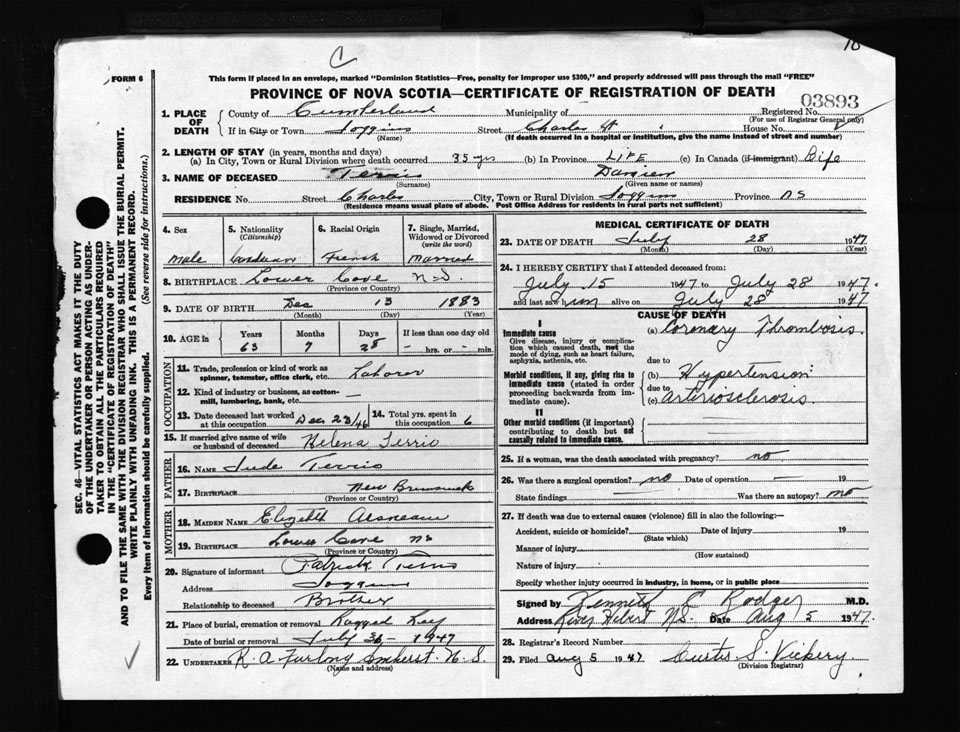 10
C
FORM 6
This form if placed in an envelope, marked "Dominion Statistics—Free, penalty for improper use $300," and properly addressed will pass through the mail "FREE"
PROVINCE OF NOVA SCOTIA—CERTIFICATE OF REGISTRATION OF DEATH
03893
1. PLACE OF DEATH
County of Cumberland Municipality of Registered No.
(For use of Registrar General only)
If in City or Town Joggins Street Charles St House No.
(Name) (If death occurred in a hospital or institution, give the name instead of street and number)
2. LENGTH OF STAY (in years, months and days)
(a) In City, Town or Rural Division where death occurred 35 yrs (b) In Province LIFE (c) In Canada (if immigrant) Life
3. NAME OF DECEASED Terris Damien
(Surname) (Given name or names)
RESIDENCE No. Street Charles City, Town or Rural Division Joggins Province NS
(Residence means usual place of abode. Post Office Address for residents in rural parts not sufficient)
4. Sex 5. Nationality (Citizenship) 6. Racial Origin 7. Single, Married, Widowed or Divorced (write the word)
Male Canadian French Married
8. BIRTHPLACE Lower Cove N.S.
(Province or Country)
9. DATE OF BIRTH Dec 13 1883
(Month) (Day) (Year)
10. AGE IN Years Months Days If less than one day old
63 7 hrs. or min.
OCCUPATION
11. Trade, profession or kind of work as spinner, teamster, office clerk, etc. Laborer
12. Kind of industry or business, as cotton-mill, lumbering, bank, etc.
13. Date deceased last worked at this occupation Dec 23/46 14. Total yrs. spent in this occupation 6
15. If married give name of wife or husband of deceased Helena Terrio
FATHER
16. NAME Jude Terris
17. BIRTHPLACE New Brunswick
(Province or Country)
MOTHER
18. MAIDEN NAME Elizabeth Arsneau
19. BIRTHPLACE Lower Cove NS
(Province or Country)
20. Signature of informant Patrick Terris
Address Joggins
Relationship to deceased Brother
21. Place of burial, cremation or removal Ragged Reef
Date of burial or removal July 1947
22. UNDERTAKER R. A. Furlong Amherst. N. S.
(Name and address)
MEDICAL CERTIFICATE OF DEATH
23. DATE OF DEATH July 28 1947
(Month) (Day)
24. I HEREBY CERTIFY that I attended deceased from:
July 15 1947 to July 28 1947.
and last saw him alive on July 28 1947
CAUSE OF DEATH
I
Immediate cause (a) Coronary Thrombosis.
Give disease, injury or complication which caused death, not the mode of dying, such as heart failure, asphyxia, asthenia, etc.
due to
Morbid conditions, if any, giving rise to immediate cause (stated in order proceeding backwards from immediate cause).
(b) Hypertension
due to
(c) artiriosclerosis.
II
Other morbid conditions (if important) contributing to death but not causally related to immediate cause.
25. If a woman, was the death associated with pregnancy? no.
26. Was there a surgical operation? no Date of operation — 19
State findings — Was there an autopsy? no
27. If death was due to external causes (violence) fill in also the following:—
Accident, suicide or homicide? Date of injury 19
(State which)
Manner of injury
(How sustained)
Nature of injury
Specify whether injury occurred in industry, in home, or in public place
Signed by Kenneth C Rodger M.D.
Address River Hebert N.S. Date Aug 5 1947.
28. Registrar's Record Number
29. Filed Aug 5 1947 Curtis S. Vickery.
(Division Registrar)
SEC. 46—VITAL STATISTICS ACT MAKES IT THE DUTY
OF THE UNDERTAKER OR PERSON ACTING AS UNDER-
TAKER TO OBTAIN ALL THE PARTICULARS REQUIRED
IN THE "CERTIFICATE OF REGISTRATION OF DEATH"
AND TO FILE THE SAME WITH THE DIVISION REGISTRAR WHO SHALL ISSUE THE BURIAL PERMIT.
WRITE PLAINLY WITH UNFADING INK. THIS IS A PERMANENT RECORD.
Every item of information should be carefully supplied. (See reverse side for instructions.)